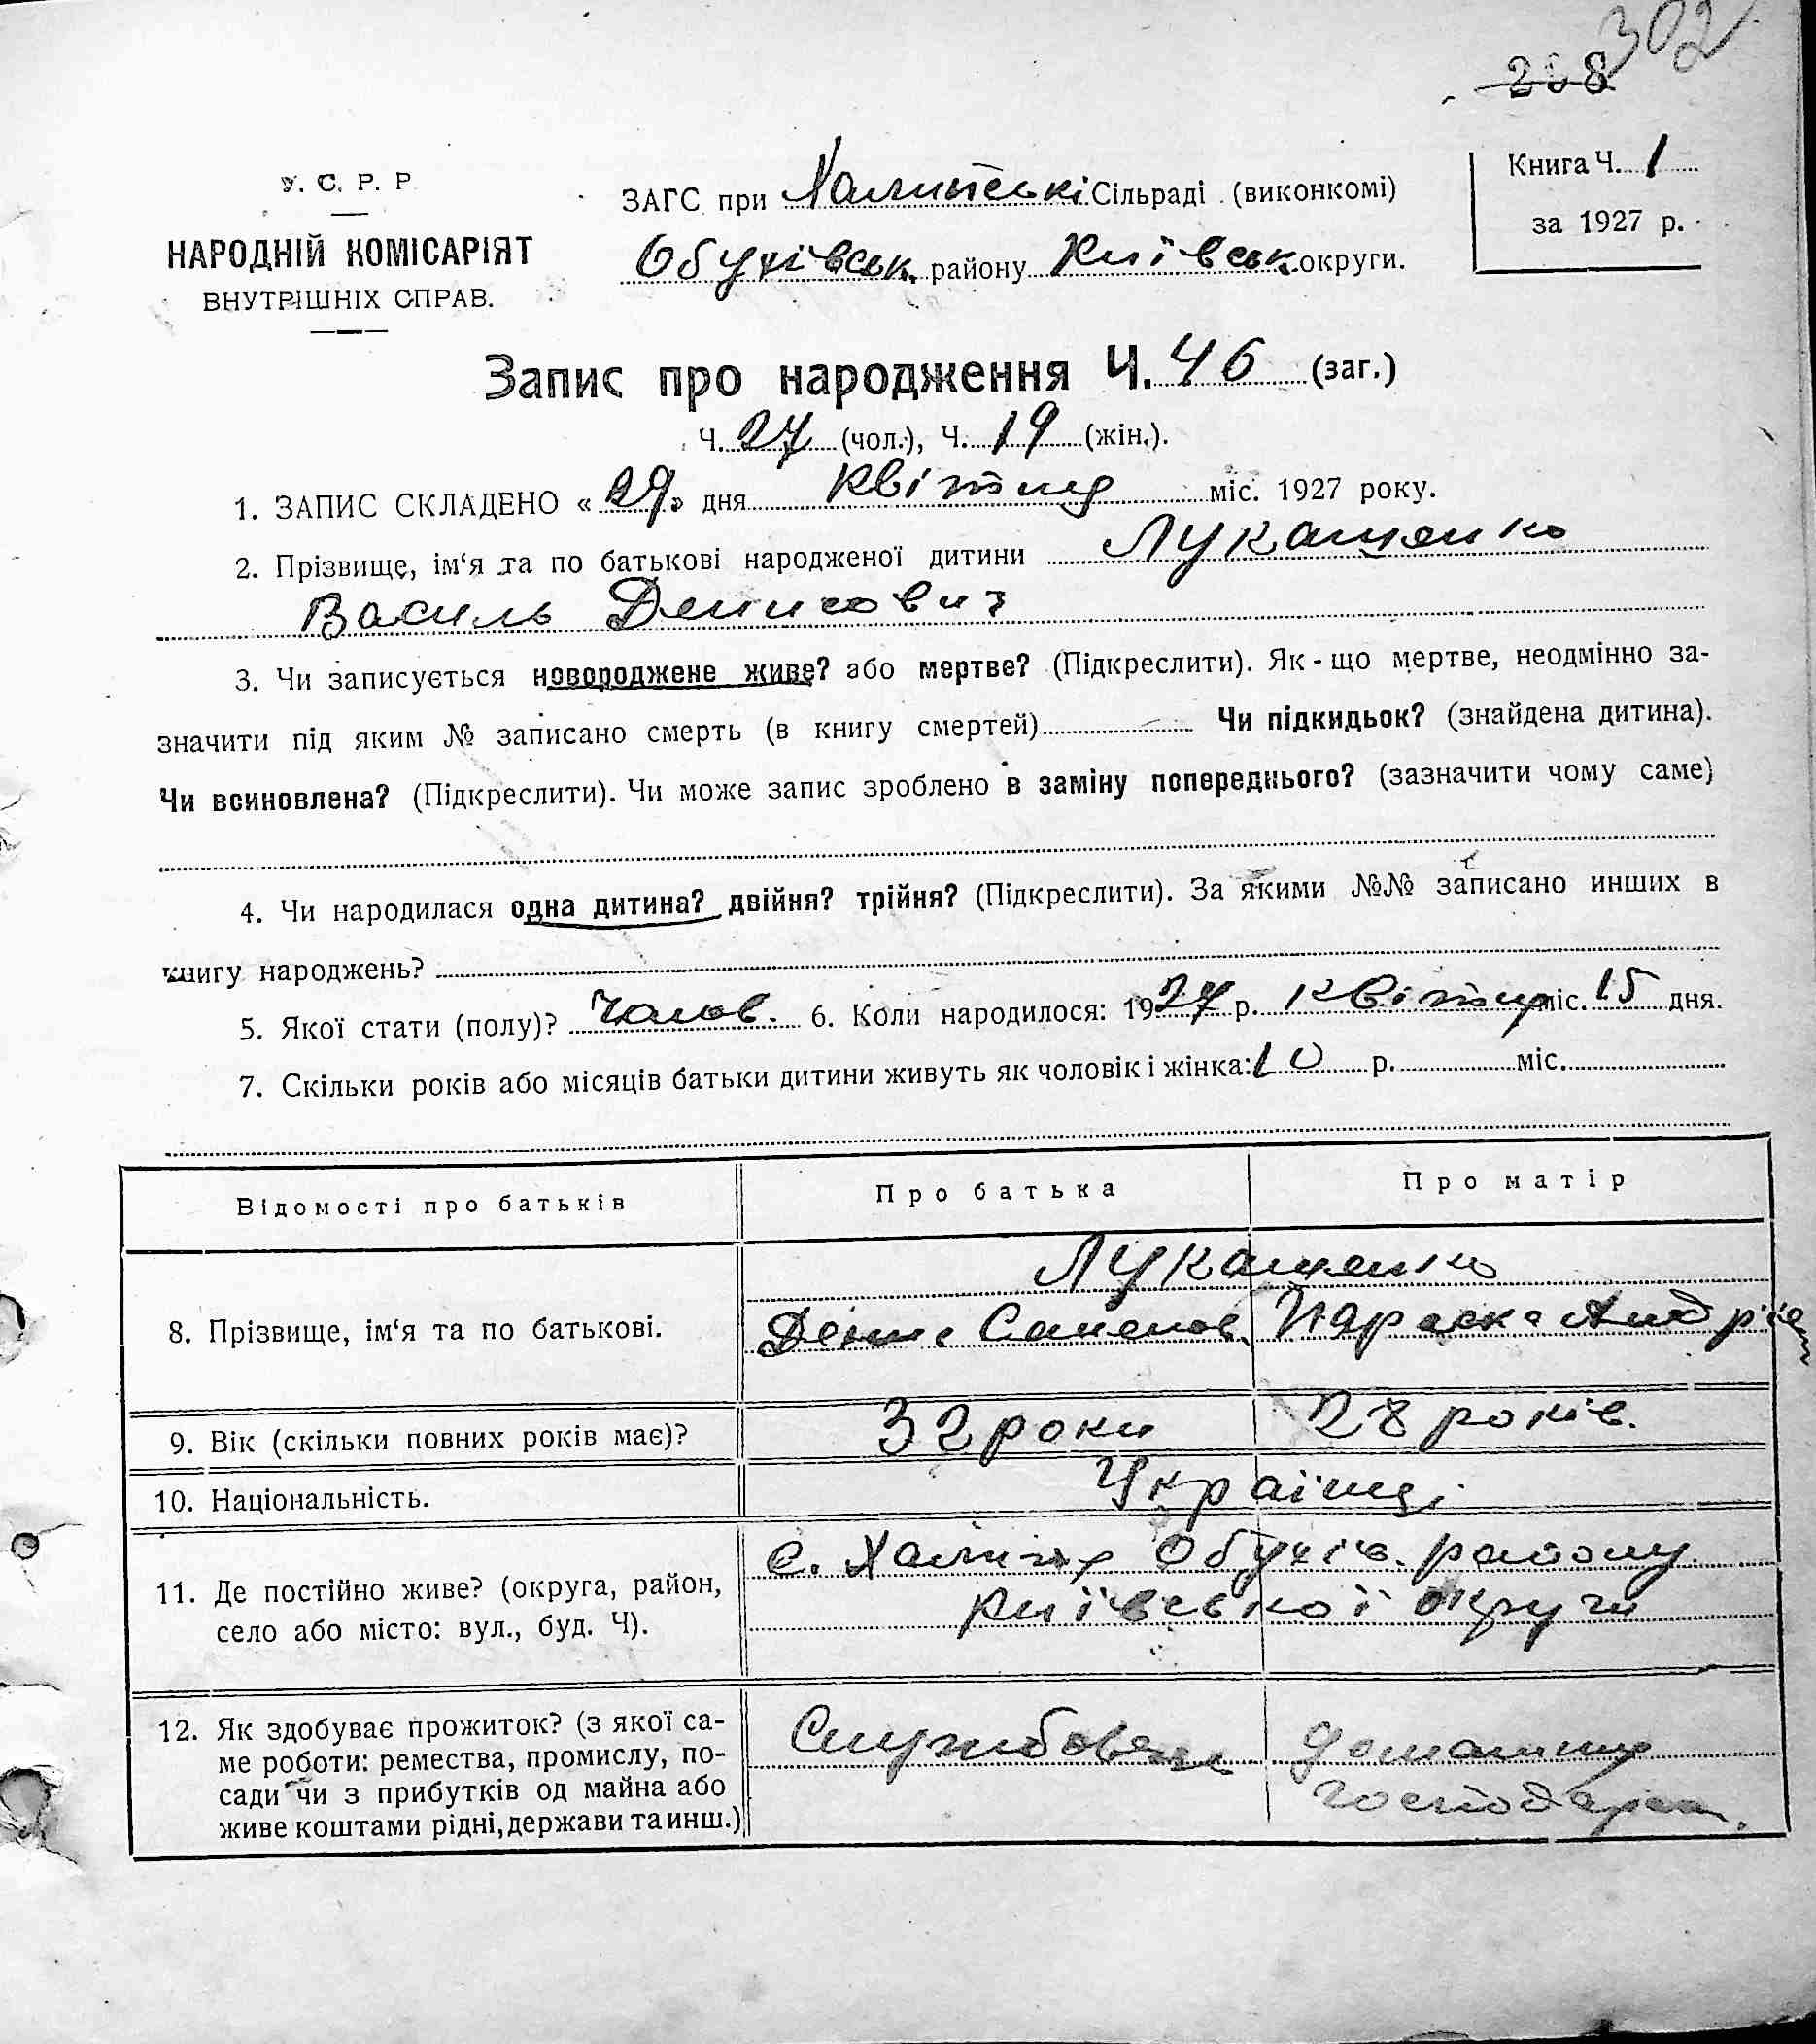 302
208
У. С. Р. Р
НАРОДНІЙ КОМІСАРІЯТ
ВНУТРІШНІХ СПРАВ.
ЗАГС при Халипській Сільраді (виконкомі)
Обухівськ. району Київськ. округи.
Книга Ч. 1
за 1927 р.
Запис про народження Ч. 46 (заг.)
Ч. 27 (чол.), Ч. 19 (жін.).
1. ЗАПИС СКЛАДЕНО «29» дня квітня міс. 1927 року.
2. Прізвище, ім‘я та по батькові народженої дитини Лукашенко
Василь Денисович
3. Чи записується новороджене живе? або мертве? (Підкреслити). Як-що мертве, неодмінно за-
значити під яким № записано смерть (в книгу смертей) Чи підкидьок? (знайдена дитина).
Чи всиновлена? (Підкреслити). Чи може запис зроблено в заміну попереднього? (зазначити чому саме)
4. Чи народилася одна дитина? двійня? трійня? (Підкреслити). За якими №№ записано инших в
книгу народжень?
5. Якої стати (полу)? Чолов. 6. Коли народилося: 1927 р. квітня міс. 15 дня.
7. Скільки років або місяців батьки дитини живуть як чоловік і жінка: 10 р. міс.
Відомості про батьків Про батька Про матір
Лукашенко
8. Прізвище, ім‘я та по батькові. Денис Параска Андріев
9. Вік (скільки повних років має)? 32 роки 28 років.
10. Національність. Українці
11. Де постійно живе? (округа, район,
село або місто: вул., буд. Ч).
с. Халипʼя Обухів. району
Київської округи
12. Як здобуває прожиток? (з якої са-
ме роботи: ремества, промислу, по-
сади чи з прибутків од майна або
живе коштами рідні, держави та инш.)
Службовець домашнє
господарст.